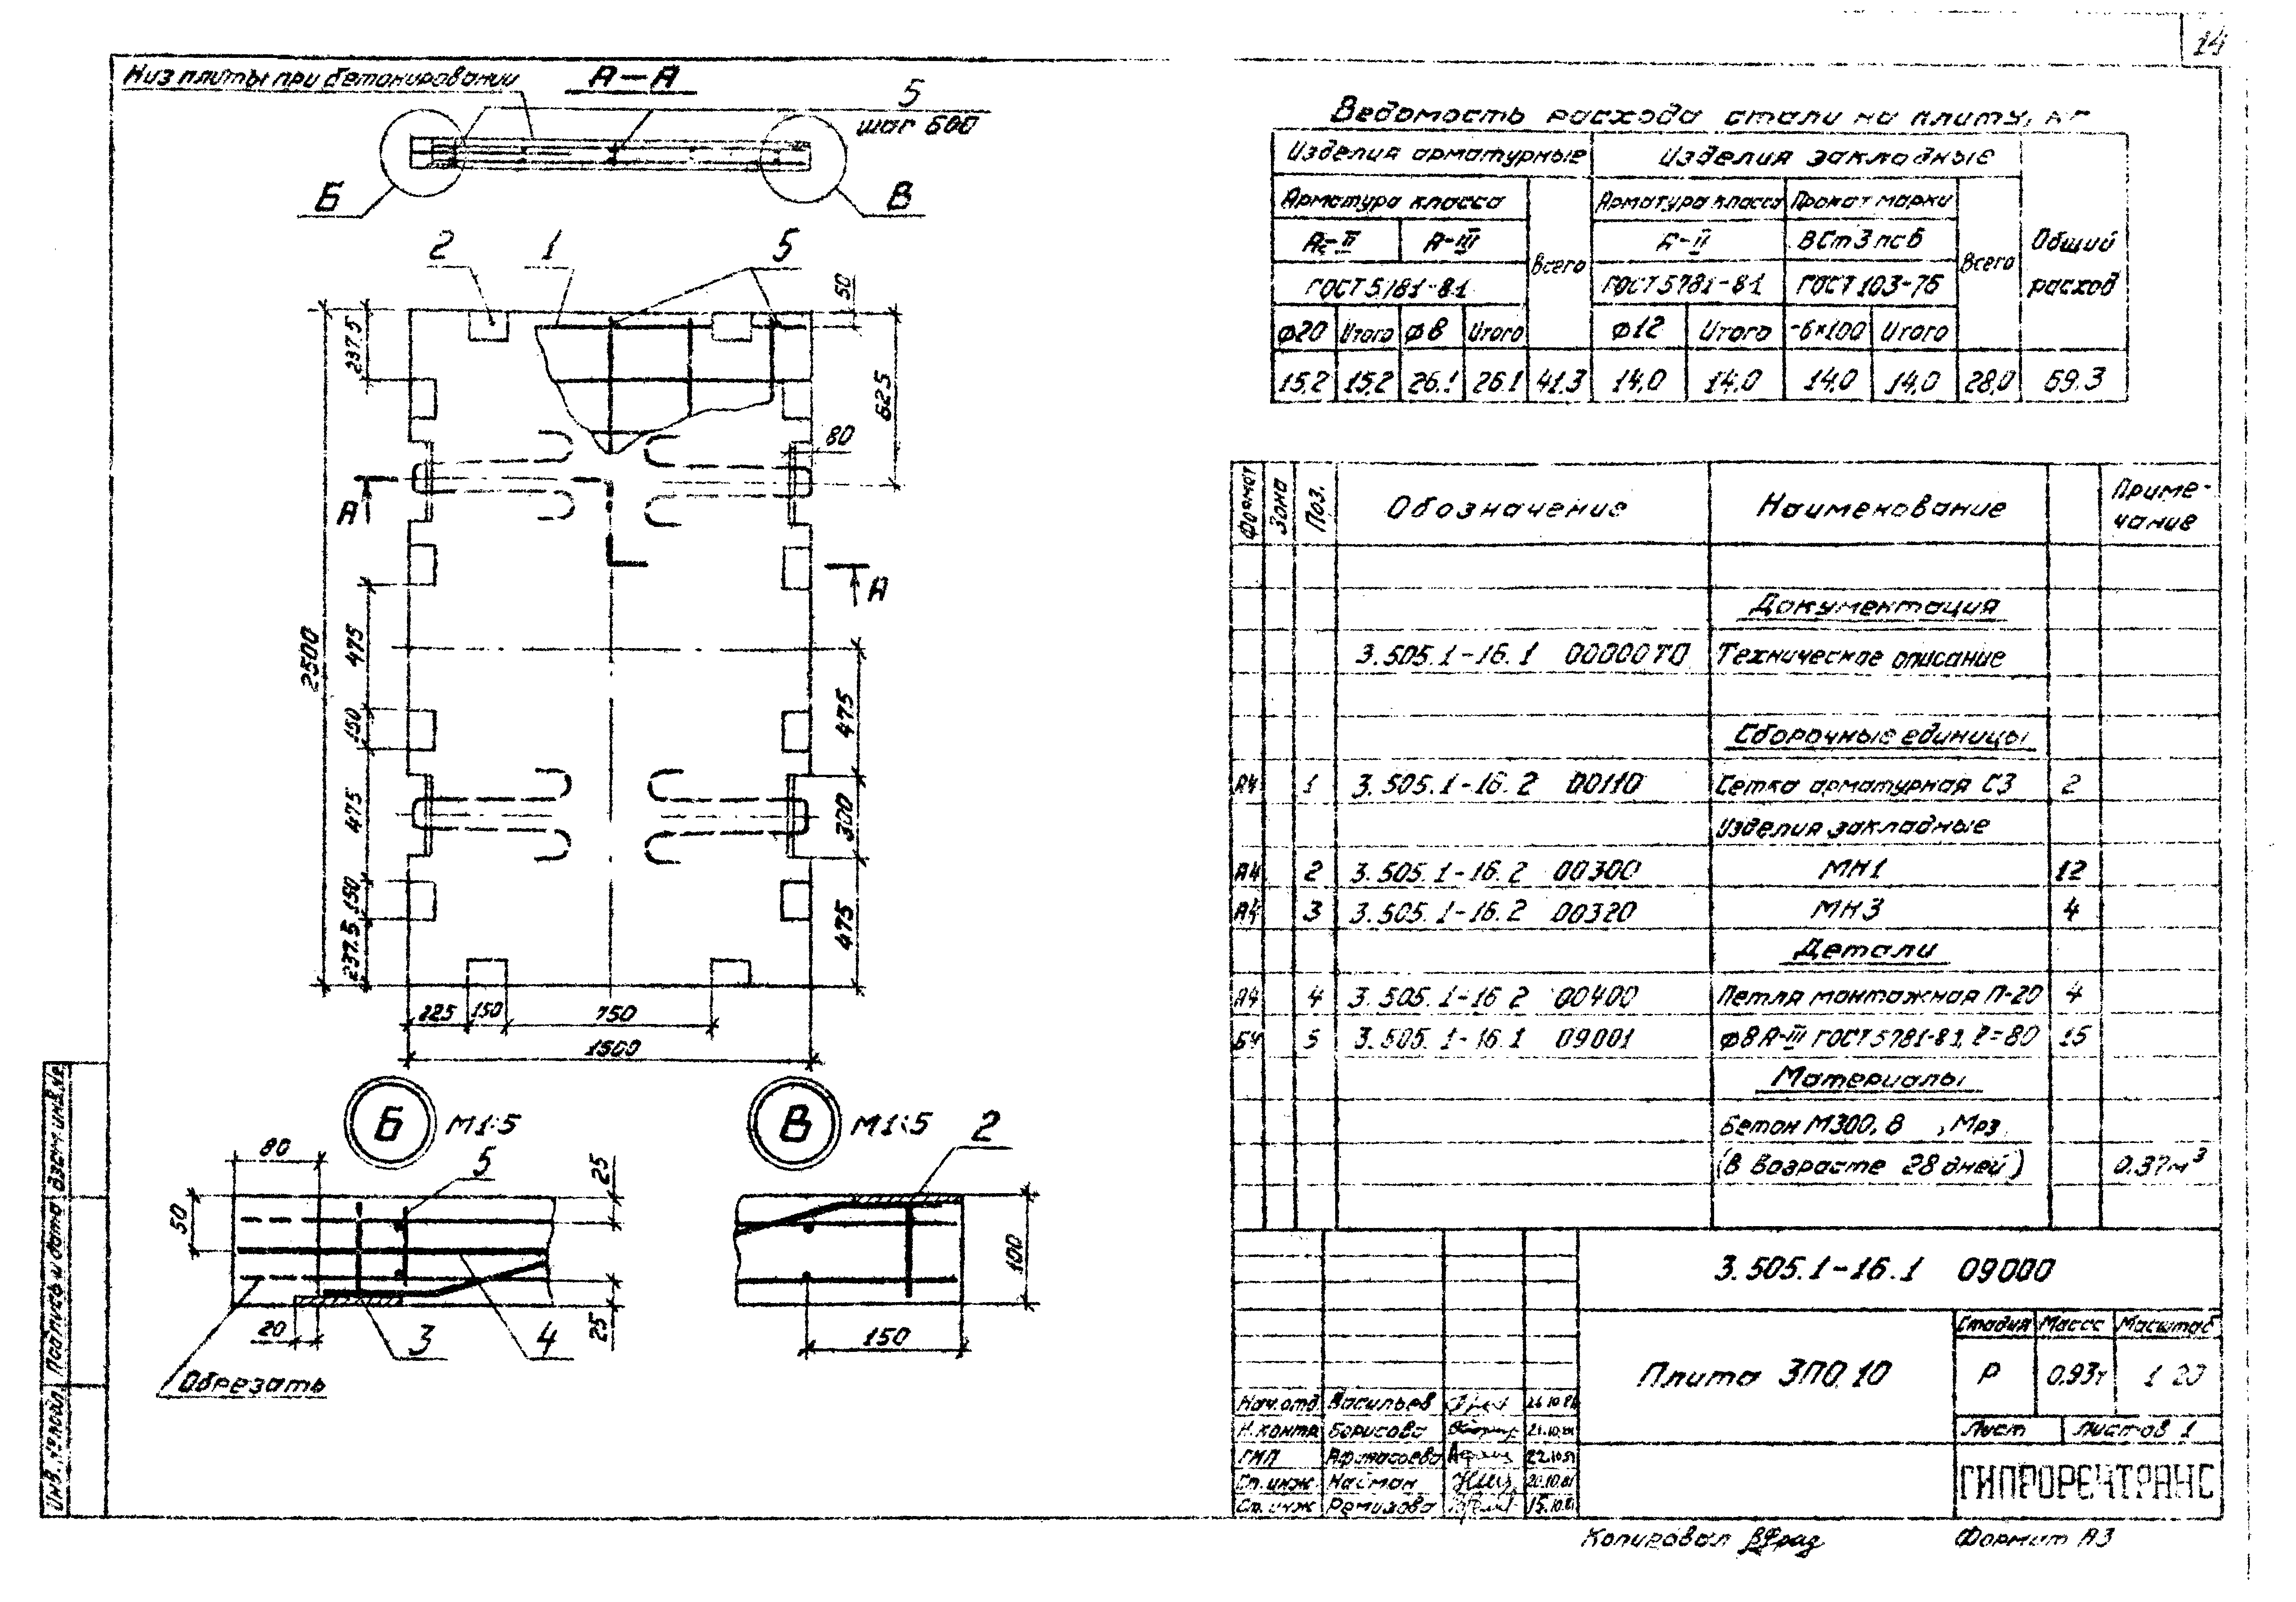 14
Низ плиты при бетонировании
А-А
5
шаг 600
Б
В
2
1
5
50
237.5
625
80
А
А
2500
475
475
150
475
300
150
475
237.5
225
150
750
1500
Б
М1:5
В
М1:5
2
80
5
25
50
100
20
3
4
25
150
Обрезать
Ведомость расхода стали на плиту, кг
Изделия арматурные
Изделия закладные
Общий расход
Арматура класса
Всего
Арматура класса
Прокат марки
Всего
Ас-II
А-III
А-II
ВСт3пс6
ГОСТ 5781-81
ГОСТ 5781-81
ГОСТ 103-76
Ф20
Итого
Ф8
Итого
Ф12
Итого
-6×100
Итого
15,2
15,2
26.1
26.1
41.3
14,0
14,0
14,0
14,0
28,0
69.3
Формат
Зона
Поз.
Обозначение
Наименование
Приме-
чание
Документация
3.505.1-16.1 00000ТО
Техническое описание
Сборочные единицы
А4
1
3.505.1-16.2 00110
Сетка арматурная С3
2
Изделия закладные
А4
2
3.505.1-16.2 00300
МН1
12
А4
3
3.505.1-16.2 00320
МН3
4
Детали
А4
4
3.505.1-16 2 00400
Петля монтажная П-20
4
Б4
5
3.505.1-16.1 09001
Ф8 А-III ГОСТ 5781-81, ℓ=80
15
Материалы
Бетон М300, В , Мрз
(в возрасте 28 дней)
0.37м³
3.505.1-16.1 09000
Плита 3П0.10
Стадия
Масса
Масштаб
Р
0,93т
1 20
Лист
Листов 1
Нач.отд.
Васильев
Н.контр
Борисова
21.10.81
ГИП
Афанасьева
22.10.81
Ст.инж
Найман
20.10.81
Ст.инж
Ремизова
15.10.81
ГИПРОРЕЧТРАНС
Копировал
Формат А3
Инв.№подл.
Подпись и дата
Взам.инв.№